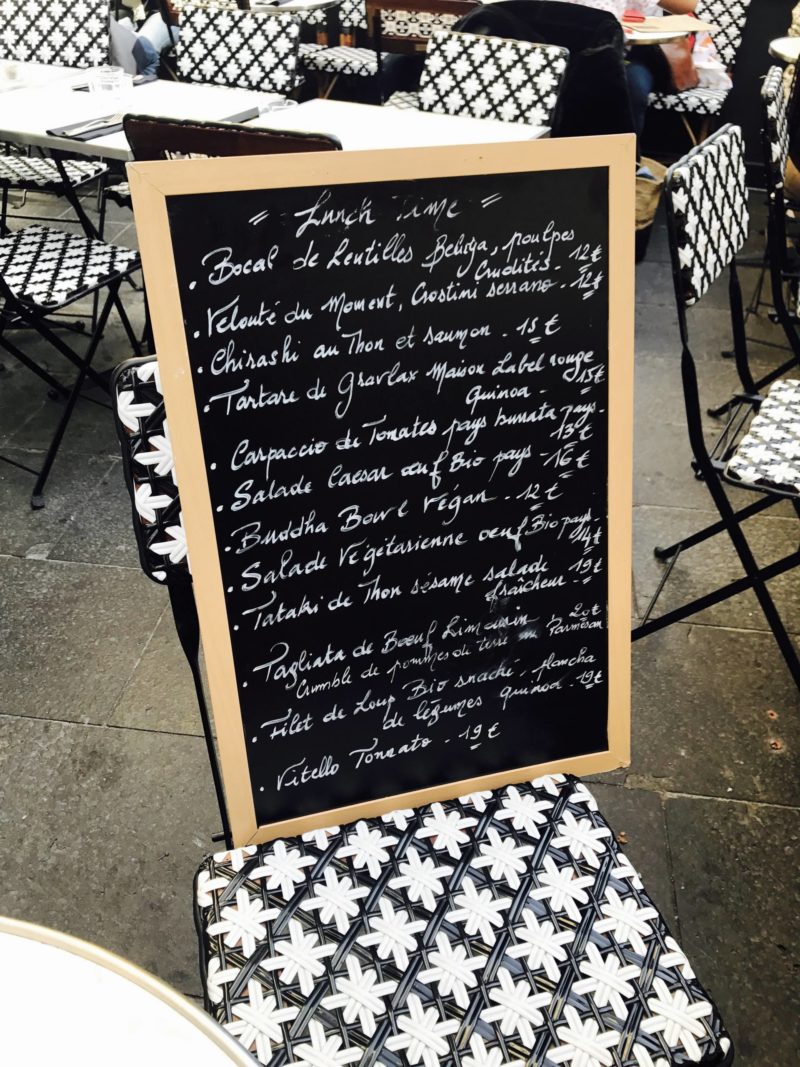 = Lunch Time =
• Bocal de Lentilles Beluga, poulpes
Crudités - 12€
• Velouté du Moment, Crostini serrano - 12€
• Chirashi au Thon et saumon - 15€
• Tartare de gravlax Maison Label rouge
Quinoa - 15€
• Carpaccio de Tomates pays burrata pays -
13€
• Salade Caesar œuf Bio pays - 16€
• Buddha Bowl Végan - 12€
• Salade Végétarienne œuf Bio pays -
14€
• Tataki de Thon sésame salade 19€
fraîcheur -
• Tagliata de Bœuf Limousin 20€
Crumble de pommes de terre Parmesan
• Filet de Loup Bio snaché - plancha
de légumes quinoa - 19€
• Vitello Tonnato - 19€